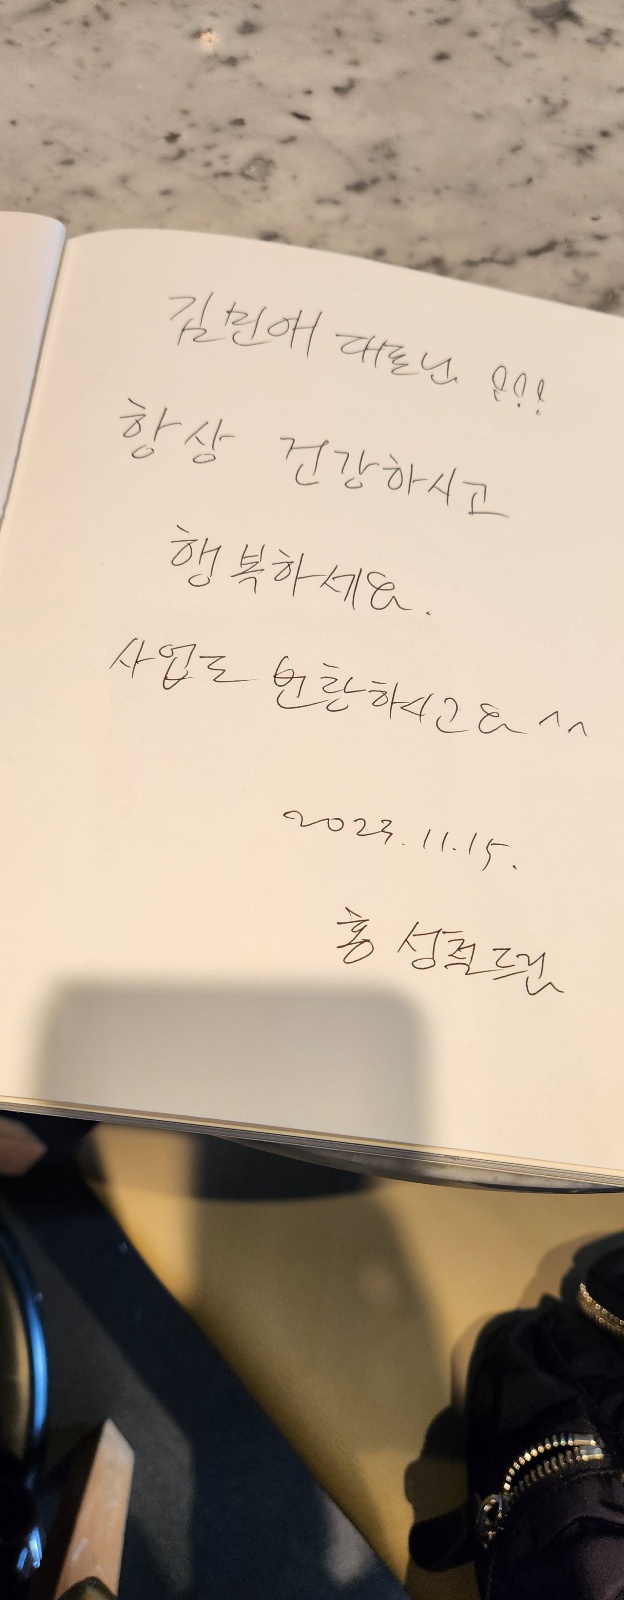 김민애 대표님 !!!
항상 건강하시고
행복하세요.
사업도 번창하시고요 ^^
2023. 11. 15.
홍성철드림